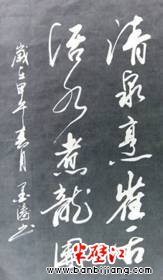 清泉烹雀舌
活水煮龍團
歲在甲午春月
半壁江
www.banbijiang.com